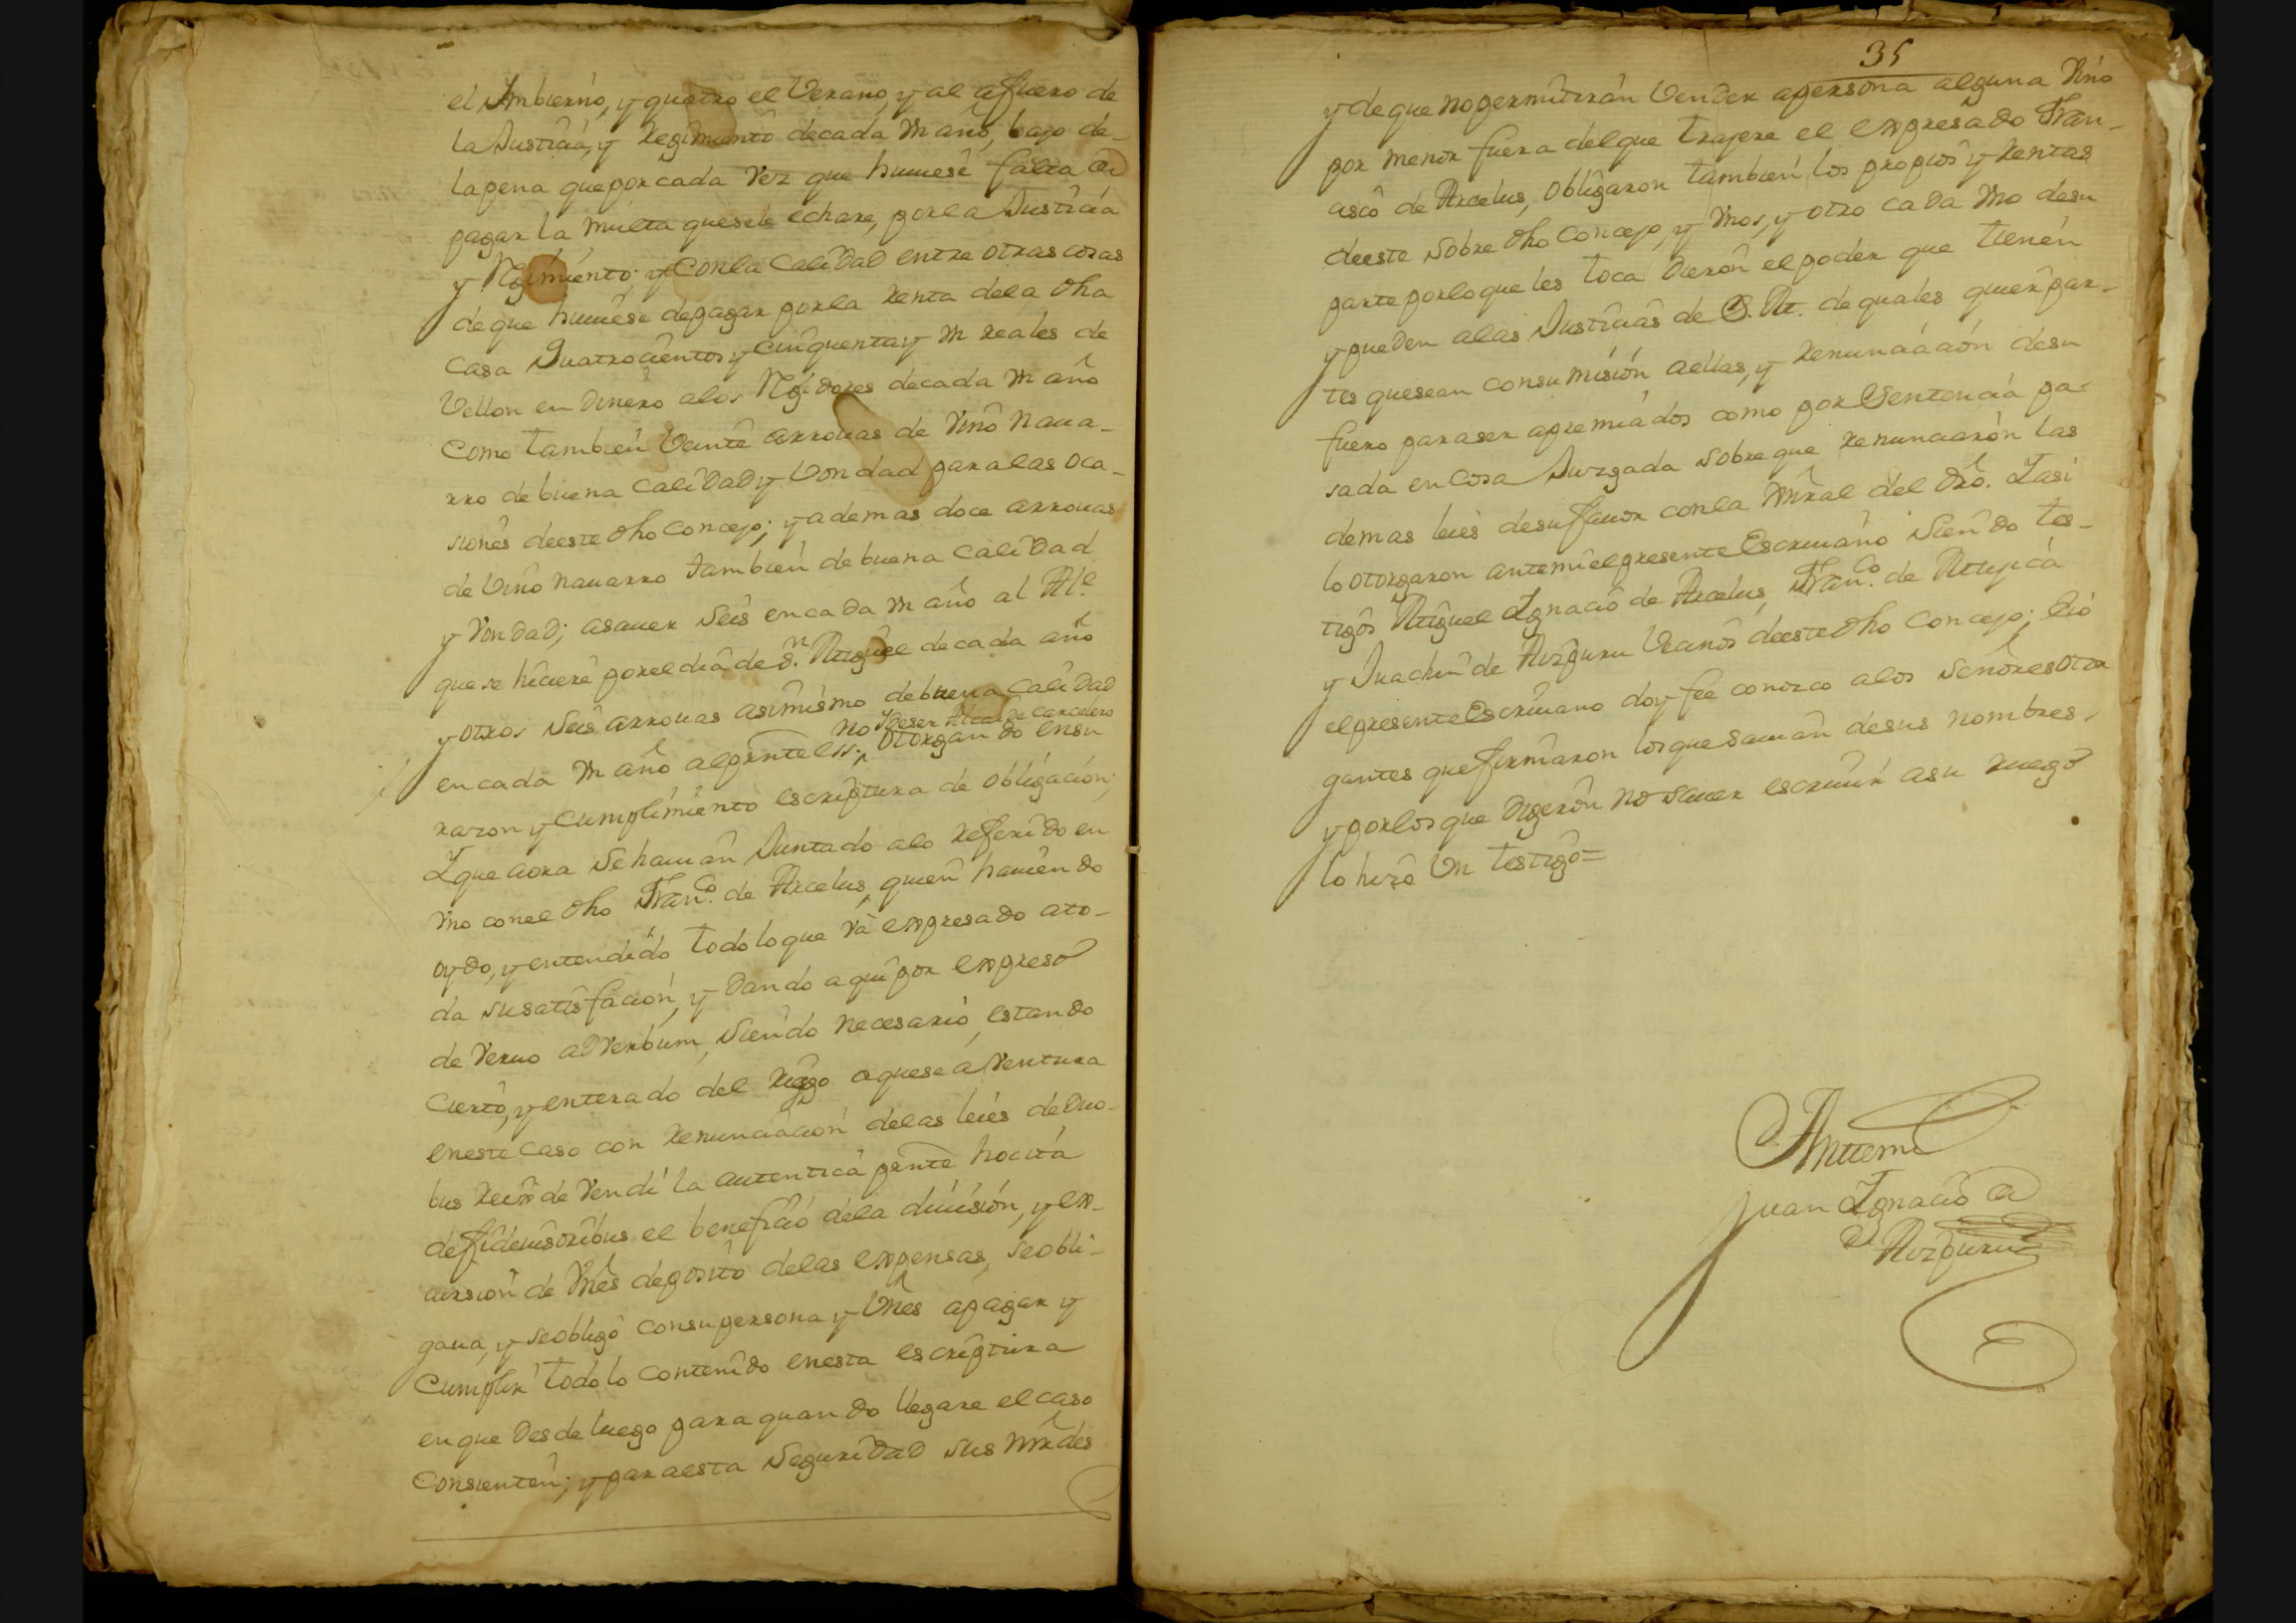 el Imbierno, y quatro el Verano, y al afuero de
la Justicia, y Regimiento de cada un año, bajo de
la pena que por cada vez que huuiese falta de
pagar la multa que se le echare, por la Justicia
y Rgimiento; y con la Calidad entre otras cosas
de que huuiese de pagar por la renta de la dha
Casa Quatrocientos y Cinquenta y un reales de
Vellon en dinero a los Rgidores de cada un año
Como tambien Veinte arrouas de Vino Naua-
rro de buena Calidad y Vondad para las oca-
siones de este dho Concejo; y ademas doce arrouas
de Vino nauarro tambien de buena Calidad
y Vondad; asauer Seis en cada un año al Al.e
que se hiciere por el dia de S.n Miguel de cada año
y otros Seis arrouas asimismo de buena Calidad
no y de ser Alcaide Carcelero
en cada un año al prnte ess.; otorgando en su
razon y Cumplimiento escriptura de obligacion;
Y que aora se hauian Juntado a lo referido en
uno con el dho Fran.co de Arcelus, quien hauiendo
oydo, y entendido todo lo que va expresado a to-
da su satisfacion, y dando aqui por expreso
de Veruo ad Verbum, Siendo necesario, estando
Cierto, y enterado del riesgo a que se aventura
en este Caso con renunciacion de las leies de Duo-
bus Reix de Vendi la autentica prnte hocita
de fideiusoribus el beneficio de la diuision, y ex-
cursion de Vnes deposito de las expensas, se obli-
gaua, y se obligo con su persona y Vnes a pagar y
Cumplir todo lo contenido en esta escriptura
en que desde luego para quando llegare el caso
Consienten; y para esta Seguridad Sus mrdes
35
y de que no permitiran Vender a persona alguna Vino
por menor fuera del que trajere el expresado Fran-
cisco de Arcelus, obligaron tambien los propios y rentas
de este Sobre dho Concejo, y Vnos, y otro cada uno de su
parte por lo que les toca dieron el poder que tienen
y pueden a las Justicias de S. M. de quales quier par-
tes que sean con su misión a ellas, y renunciación de su
fuero para ser apremiados como por Sentencia pa-
sada en Cosa Juzgada Sobre que renunciarón las
demas leies de su fauor con la Gnral del dro. Y asi
lo otorgaron ante mi el presente Escriuano Siendo tes-
tigos Miguel Ignacio de Arcelus, Fran.co de Mujica
y Juachin de Aizpuru Vecinos de este dho Concejo; e io
el presente Escriuano doy fee conozco a los Señores otor
gantes que firmaron los que Sauian de sus nombres,
y por los que digerón no Sauer escriuir a su ruego
lo hizo Un testigo=
Anttemi
Juan Ignacio de
Aizpuru